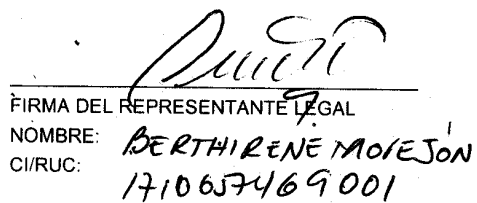 FIRMA DEL REPRESENTANTE LEGAL
NOMBRE: BERTHIRENE MOREJÓN
CI/RUC: 1710657469001